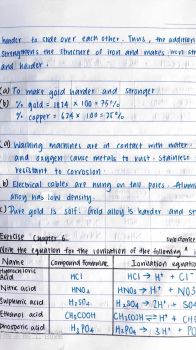 harder to slide over each other. Thus, the addition
strengthens the structure of iron and makes iron str
and harder.
(a) To make gold harder and stronger
b) % gold = 18/24 × 100 = 75%
% copper = 6/24 × 100 = 25%
(a) Washing machines are in contact with water
and oxygen cause metals to rust. Stainless
resistant to corrosion
b) Electrical cables are hung on tall poles. Alumin
alloy has low density.
c) Pure gold is soft. Gold alloy is harder and st
Exercise Chapter 6
Write the equation for the ionisation of the following
Name Compound Formulae Ionisation equati
Hydrochloric Acid HCl HCl → H⁺ + Cl⁻
Nitric acid HNO₃ HNO₃ → H⁺ + NO3
Sulphuric acid H₂SO₄ H₂SO₄ → 2H⁺ + SO4
Ethanoic acid CH₃COOH CH₃COOH ⇌ H⁺ + CH3
Phosphoric acid H₃PO₄ H₃PO₄ → 3H⁺ + PO